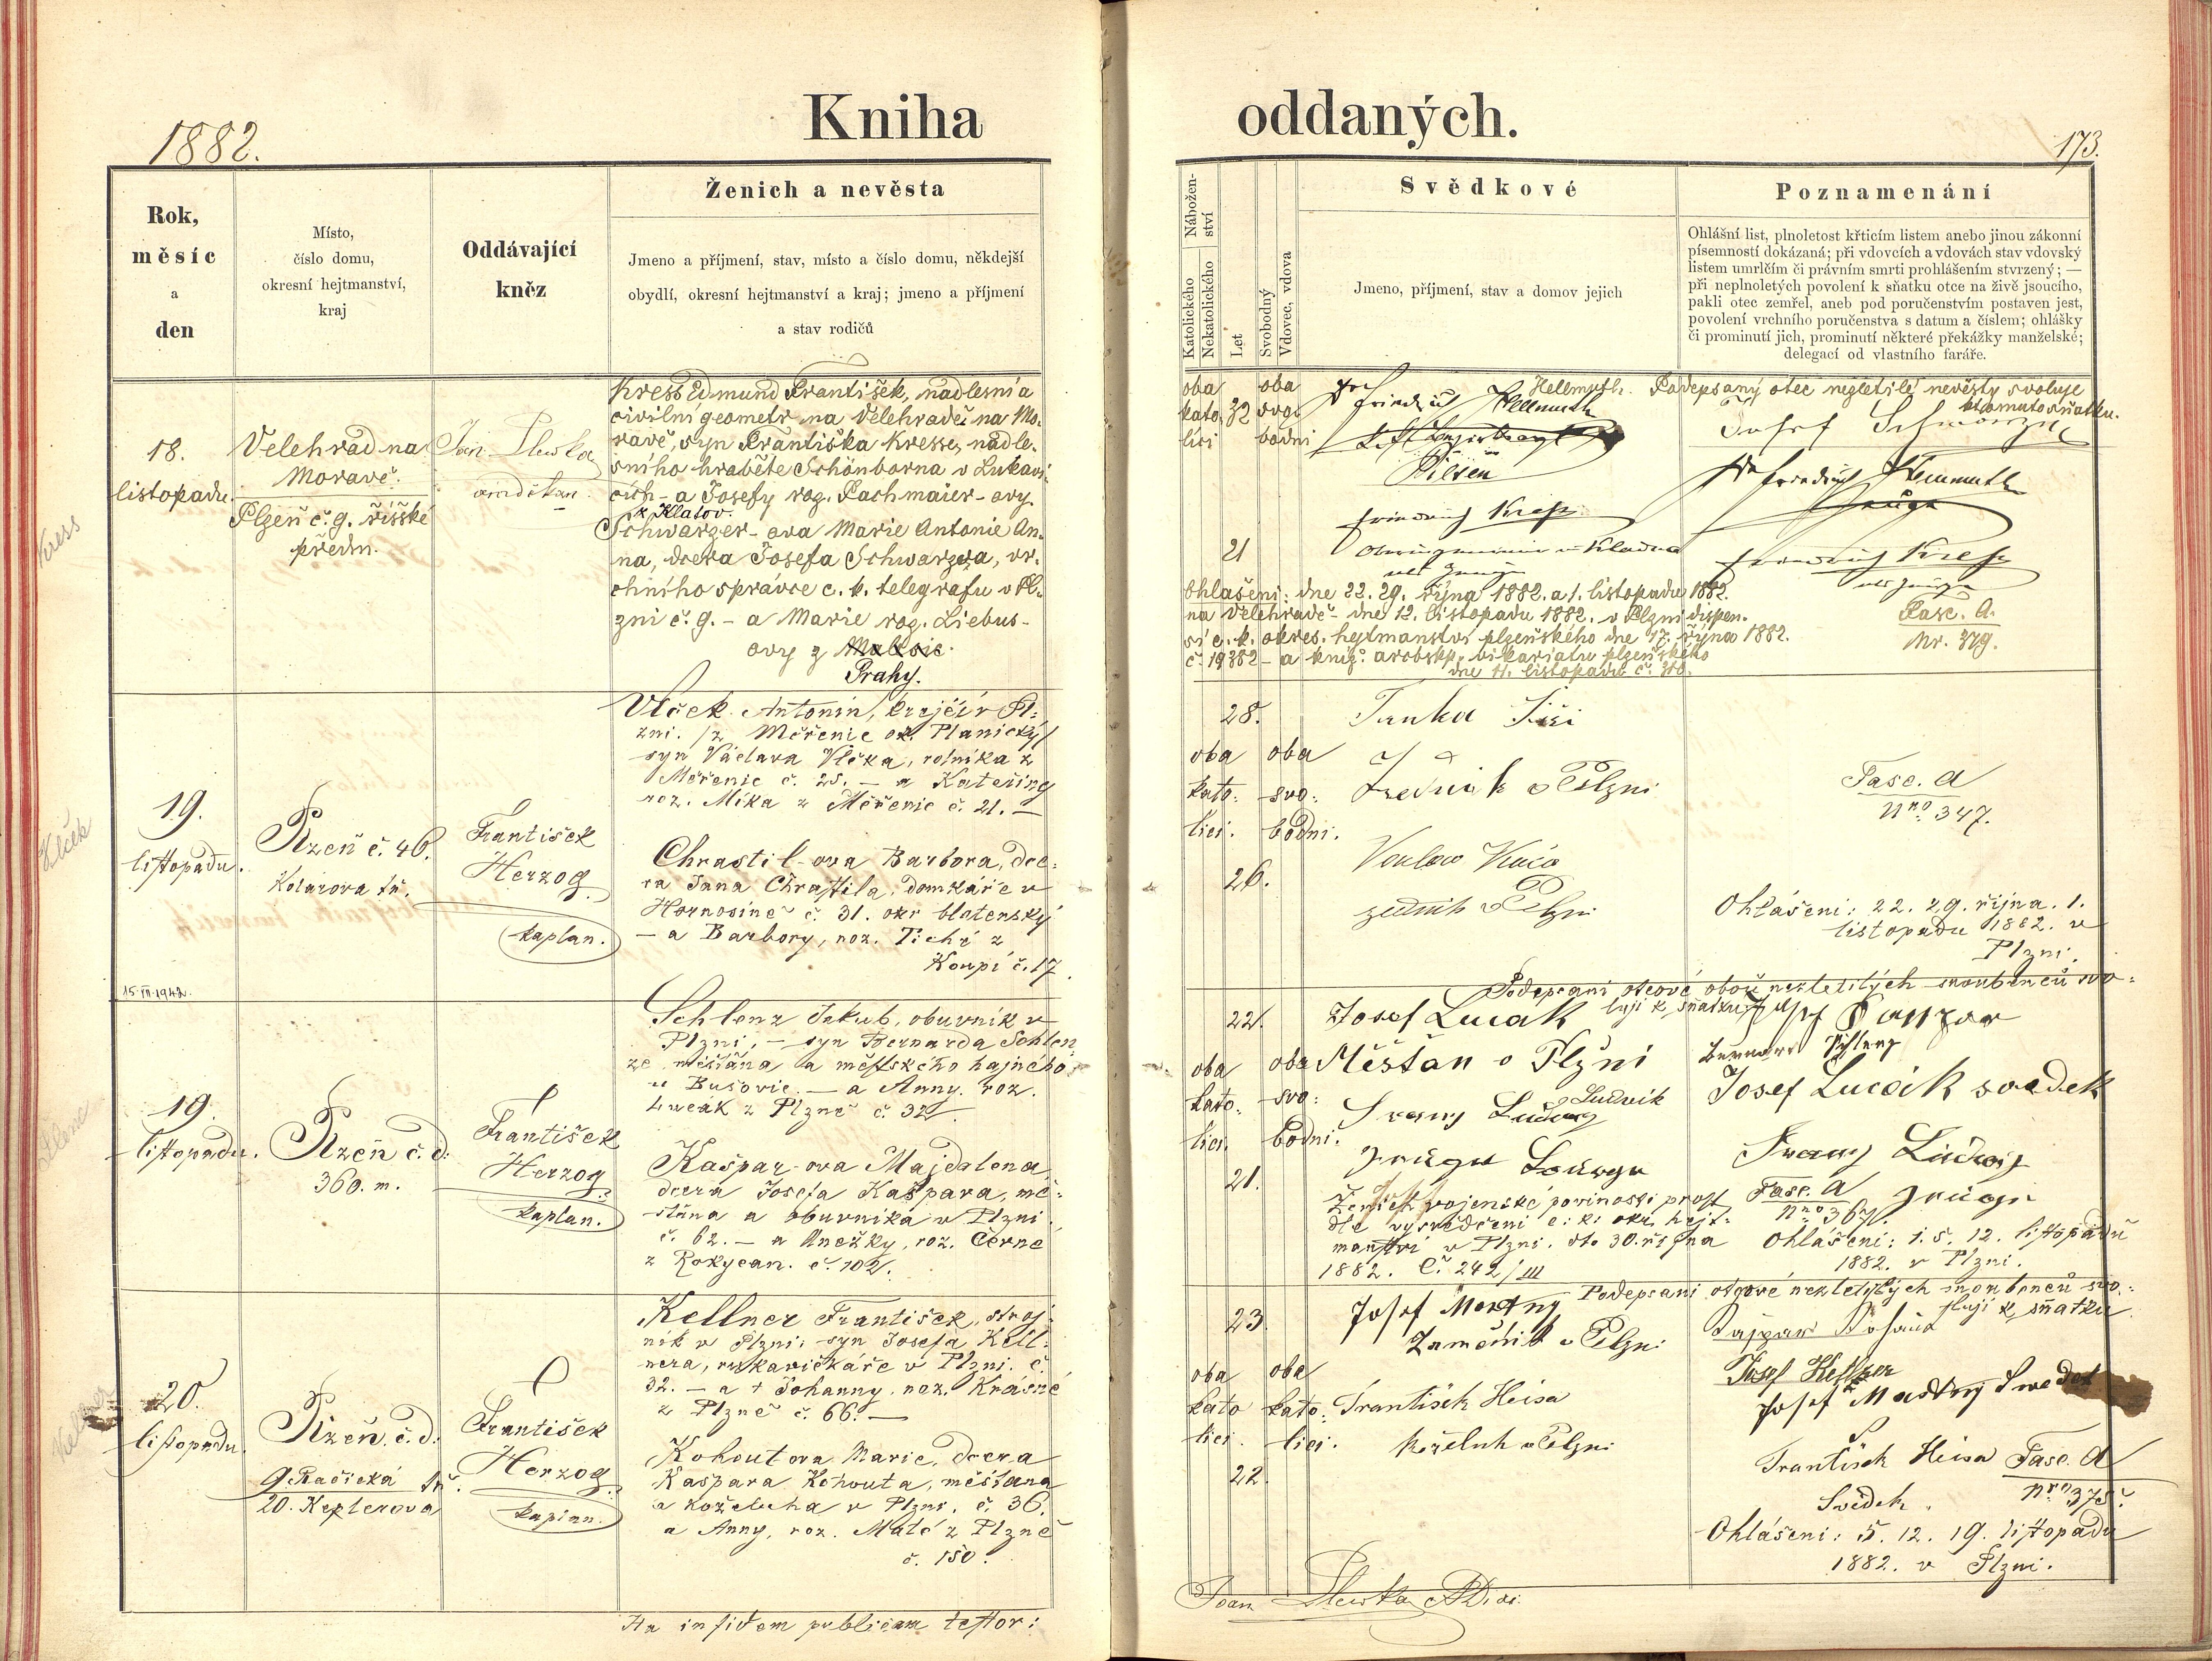 Kniha oddaných.
1882.
173.
Rok,
měsíc
a
den
Místo,
číslo domu,
okresní hejtmanství,
kraj
Oddávající
kněz
Ženich a nevěsta
Jmeno a příjmení, stav, místo a číslo domu, někdejší
obydlí, okresní hejtmanství a kraj; jmeno a příjmení
a stav rodičů
Nábožen-
ství
Katolického
Nekatolického
Let
Svobodný
Vdovec, vdova
Svědkové
Jmeno, příjmení, stav a domov jejich
Poznamenání
Ohlášní list, plnoletost křticím listem anebo jinou zákonní
písemností dokázaná; při vdovcích a vdovách stav vdovský
listem umrlčím či právním smrti prohlášením stvrzený; —
při neplnoletých povolení k sňatku otce na živě jsoucího,
pakli otec zemřel, aneb pod poručenstvím postaven jest,
povolení vrchního poručenstva s datum a číslem; ohlášky
či prominutí jich, prominutí některé překážky manželské;
delegací od vlastního faráře.
Kress
18.
listopadu.
Velehrad na
Moravě.
Plzeň č. 9. říšské
předm.
Jan
Kress Edmund František, nadlesní a
civilní geometr na Velehradě na Mo-
ravě, syn Františka Kresse, nadle-
sního hraběte Schönborna v Lukavi-
cích - a Josefy roz. Pachmaier-ovy
z Klatov.
Schwarzer-ova Marie Antonie An-
na, dcera Josefa Schwarzera, vr-
chního správce c. k. telegrafu v Pl-
zni č. 9. - a Marie roz. Liebus-
ovy z
Prahy.
oba
kato
lici
32
oba
svo
bodni
21
Friedrich Hellmuth
Hellmuth.
Pilsen
Friedrich Kress
Podepsaný otec nezletilé nevěsty svoluje
k tomuto sňatku.
Josef Schwarzer
Friedrich Hellmuth
Zeuge
Friedrich Kress
als Zeuge
Ohlašení: dne 22. 29. října 1882. a 1. listopadu 1882.
na Velehradě - dne 12. listopadu 1882. v Plzni dispen.
sí c. k. okres. hejtmanství plzeňského dne 17. října 1882.
č. 19382 - a kníž. arcibskp. vikariatu plzeňského
Fasc. A.
Nr. 379.
Vlček
19.
listopadu.
Plzeň č. 46.
Kolárova tř.
František
Herzog
kaplan.
Vlček Antonín, krejčí v Pl-
zni. /z Měčenic ok. Planický/
syn Václava Vlčka, rolníka z
Měčenic č. 25. — a Kateřiny
roz. Míka z Měčenic č. 21. —
Chrastil-ova Barbora, dce-
ra Jana Chrastila, domkáře v
Hornosíně č. 31. okr blatenský
— a Barbory, roz. Tichý z
Koupí č. 17.
28.
oba
kato:
lici.
26.
oba
svo:
bodni.
Tunka Jiří
v Plzni
zedník v Plzni
Fasc. A
Nro 347.
Ohlášeni: 22. 29. října. 1.
listopadu 1882. v
Plzni.
15. VII. 1942.
19.
listopadu.
Plzeň č. d.
360. m.
František
Herzog
kaplan.
Schlenz Jakub, obuvník v
Plzni, — syn Bernarda Schlen-
ze, měšťana a městského hajného
v Bušovic. — a Anny. roz.
Lucák z Plzně č. 32
Kašpar-ova Majdalena
dcera Josefa Kašpara, mě-
šťana a obuvníka v Plzni
č. 62. — a Anežky, roz. Černé
z Rokycan. č. 102.
22.
oba
kato:
lici.
21.
oba
svo:
bodni.
Josef Lucak
Měšťan v Plzni
Ludvik
Franz Ludwig
Zeuge
Podepsaní otcové obou nezletilých snoubenců svo-
lují k sňatku.
Josef Lucák svedek
Franz Ludwig
Zeuge
Ženich vojenské povinosti prost
dle vysvědčení c. k. okr. hejt-
manství v Plzni. dto 30. října
1882. Č. 242/III
Fasc. A
Nro 367.
Ohlášeni: 1. 5. 12. listopadu
1882. v Plzni.
Kellner
20.
listopadu.
Plzeň. č. d.
9. Pražská tř.
20. Keplerova
František
Herzog
kaplan.
Kellner František, stroj-
ník v Plzni; syn Josefa Kell-
nera, rukavičkáře v Plzni. č.
32. — a † Johanny. roz. Krásné
z Plzně č. 66. —
Kohoutova Marie, dcera
Kašpara Kohouta, měšťana
a koželuha v Plzni. č. 36.
a Anny, roz. Malé z Plzně
č. 150.
23.
oba
kato
lici.
22.
oba
kato:
lici.
Josef Mastny
Zamečnik v Plzni
František Heisa
Koželuh v Plzni
Podepsaní otcové nezletilých snoubenců svo-
lují k sňatku
Kaspar Kohaut
Josef Kellner
Josef Mastný Swedek
František Heisa
Svědek.
Fasc. A
Nro 375.
Ohlášeni: 5. 12. 19. listopadu
1882. v Plzni.
Ita in fidem publicam testor:
Joan